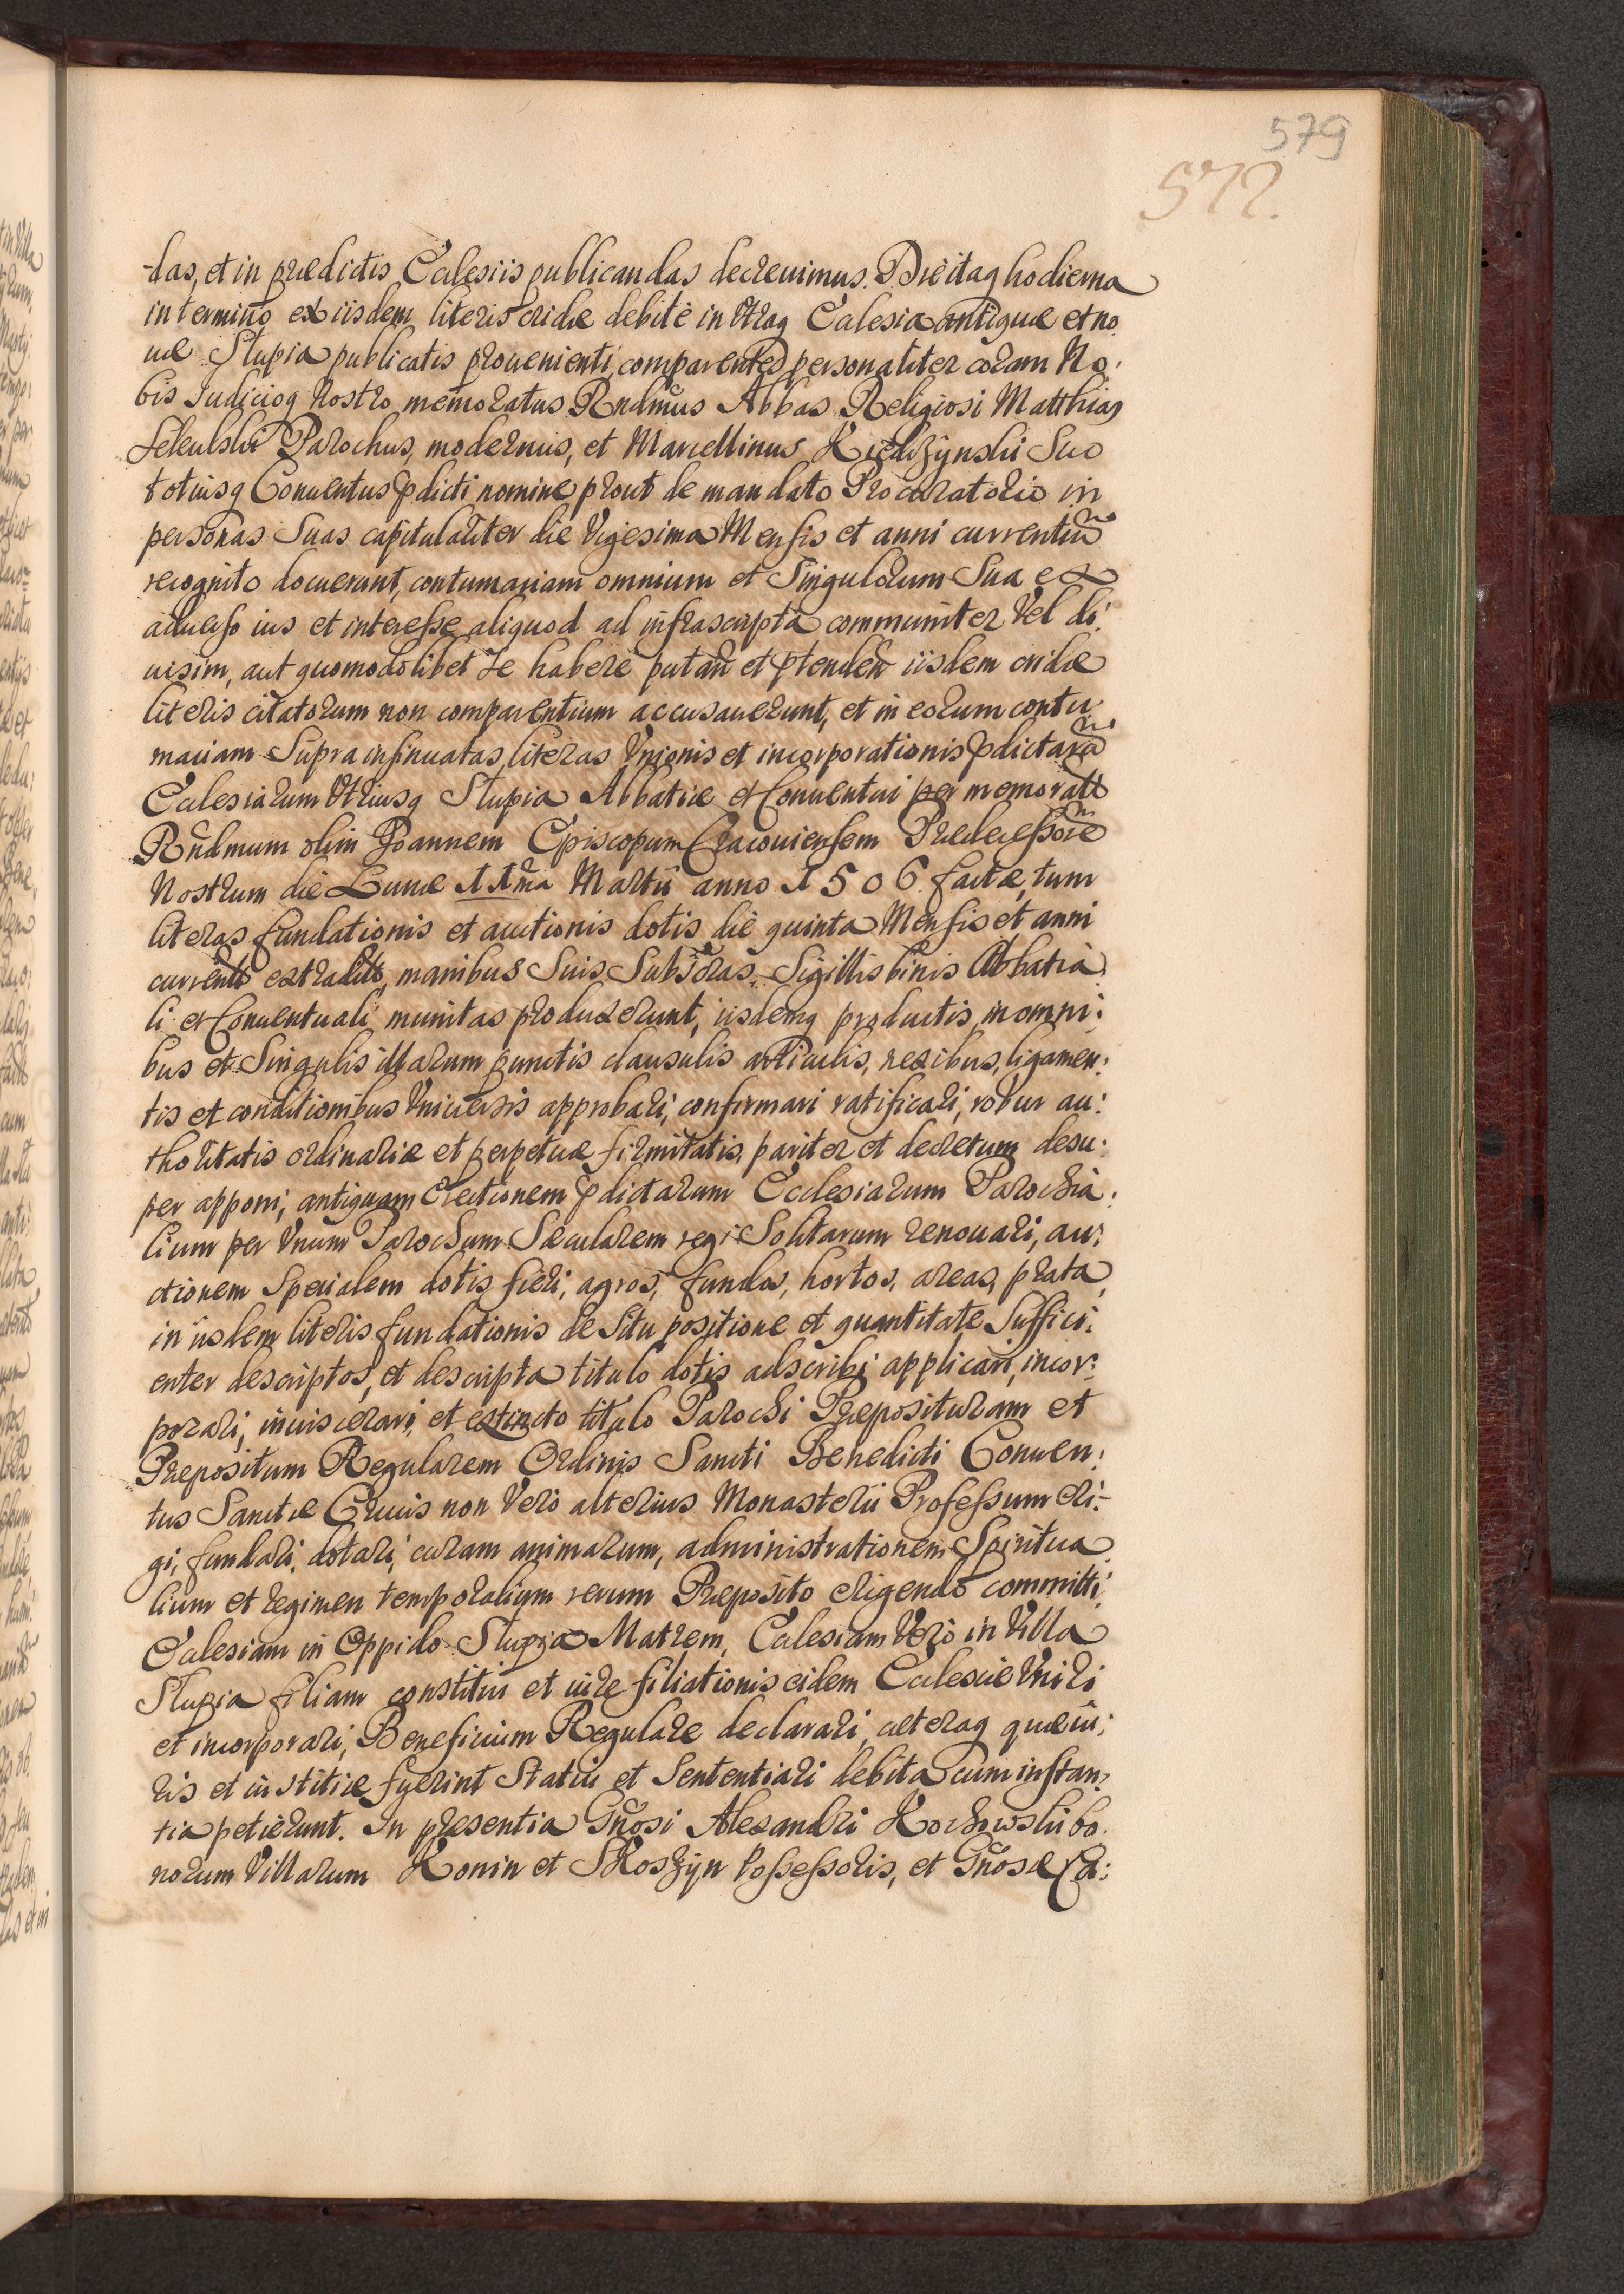 579
572.
-das, et in prædictis Ecclesiis publicandas decreuimus. Die itaq hodierna
in termino ex iisdem literis cridæ debite in Vtraq Ecclesia antiquæ et no
uæ Slupia publicatis prouenienti, comparentes personaliter coram No:
bis Iudicioq Nostro memoratus Rndmus Abbas Religiosi Matthias
Parochus modernus, et Marcellinus Kiedrzynski Suo
totiusq Conuentus pdicti nomine prout de mandato Procuratorio in
personas Suas capitulariter die Vigesima Mensis et anni currentiu
recognito docuerunt, contumaciam omnium et Singulorum Sua ex
aduerso ius et interesse aliquod ad infrascripta communiter Vel di:
uisim, aut quomodolibet Se habere putan et ptenden iisdem cridæ
literis citatorum non comparentium accusauerunt, et in eorum contu
maciam Supra insinuatas literas Vnionis et incorporationis pdictaru
Ecclesiarum Vtriusq Slupia Abbatiæ et Conuentui per memoratu
Rndmum olim Joannem Episcopum Cracouiensem Prædecessore
Nostrum die Lunæ 11ma Martii anno 1506 factæ, tum
literas fundationis et auctionis dotis die quinta Mensis et anni
currentis extradit, manibus Suis Subscras, Sigillis binis Abbatia
li et Conuentuali munitas produxerunt, iisdemq productis in omni:
bus et Singulis illarum punctis clausulis articulis, nexibus, ligamen:
tis et conditionibus Vniuersis approbari, confirmari ratificari, robur au:
thoritatis ordinariæ et perpetuæ firmitatis, pariter et decretum desu:
per apponi, antiquam Erectionem pdictarum Ecclesiarum Parochia:
lium per Vnum Parochum Sæcularem regi Solitarum renouari, au:
ctionem Specialem dotis fieri, agros, fundos, hortos, areas, prata
in iisdem literis fundationis de Situ positione et quantitate Suffici:
enter descriptos, et descripta titulo dotis adscribi applicari, incor:
porari, inuiscerari, et extincto titulo Parochi Præposituram et
Præpositum Regularem Ordinis Sancti Benedicti Conuen:
tus Sanctæ Crucis non Vero alterius Monasterii Professum eri-
gi, fundari, dotari, curam animarum, administrationem Spiritua
lium et regimen temporalium rerum Præposito erigendo committi,
Ecclesiam in Oppido Slupia Matrem, Ecclesiam Vero in Villa
Slupia filiam constitui et iure filiationis eidem Ecclesiæ Vniri
et incorporari, Beneficium Regulare declarari cæteraq quæ iu:
ris et iustitiæ fuerint Statui et Sententiari debita cum instan:
tia petierunt. In presentia Gnosi Alexandri Kochowski bo:
norum Villarum Konin et Skoszyn Possessoris, et Gnosæ Ca: